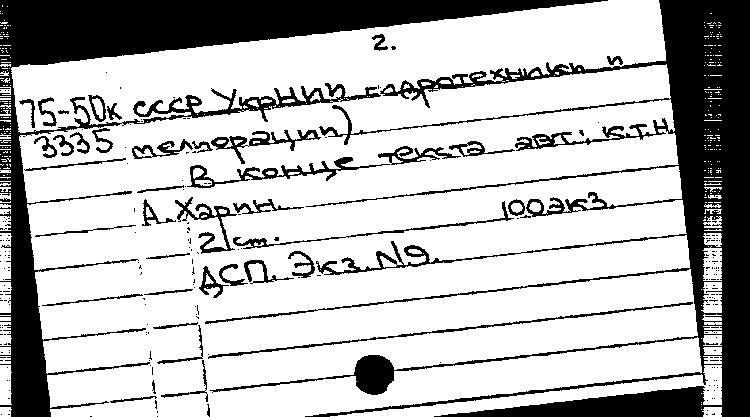 2.
75-50к СССР УкрНИИ гидротехники и
3335 мелиорации).
В конце текста авт.: к.т.н.
А. Харин.
21см. 100экз.
ДСП. Экз. №9.